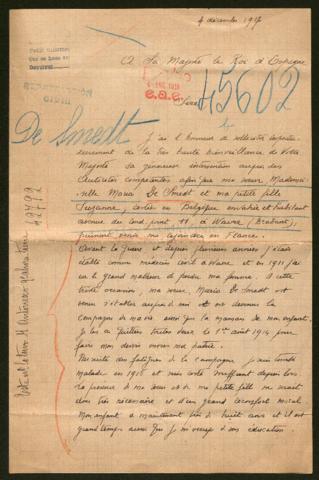 4 décembre 1917
A Sa Majesté le Roi d'Espagne
Sire
45602
De Smedt
J'ai l'honneur de solliciter respectu-
eusement de la très haute bienveillance de Votre
Majesté sa généreuse intervention auprès des
Autorités compétentes afin que ma sœur Mademoi-
selle Maria De Smedt et ma petite fille
Suzanne, restées en Belgique envahie et habitant
avenue du 11, à Wavre (Brabant),
puissent venir me rejoindre en France.
Avant la guerre et depuis plusieurs années j'étais
établi comme médecin civil à Wavre et en 1911 j'ai
eu le grand malheur de perdre ma femme. A cette
triste occasion, ma sœur, Maria De Smedt est
venue s'établir auprès de moi et est devenue la
compagne de ma vie ainsi que la maman de mon enfant.
Je les ai quittées toutes deux le 1er août 1914 pour
faire mon devoir envers ma patrie.
Par suite des fatigues de la campagne j'suis tombé
malade en 1915 et suis resté souffrant depuis lors
La présence de ma sœur et de ma petite fille me serait
donc très nécessaire et d'un grand réconfort moral
Mon enfant a maintenant près de huit ans et il est
grand temps aussi que je m'occupe de son éducation